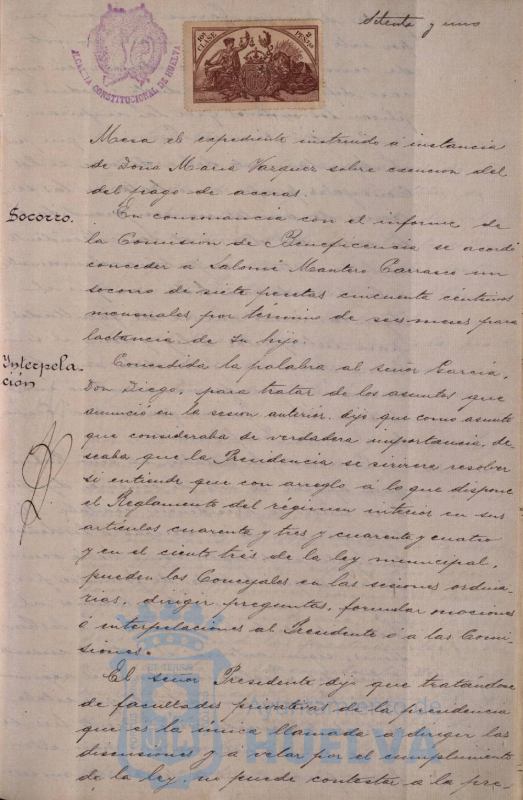 Setenta y uno
ALCALDIA CONSTITUCIONAL DE HUELVA
10ª CLASE
2 PESETAS
Mesa el expediente instruido á instancia
de Doña Maria Vazquez sobre esencion del
del pago de aceras.
Socorro.
En consonancia con el informe de
la Comision de Beneficencia se acordó
conceder á Salomé Mantero Carrasco un
socorro de siete pesetas cincuenta centimos
mensuales por termino de seis meses para
lactancia de su hijo.
Interpela-
ción
Concedida la palabra al señor Garcia,
Don Diego, para tratar de los asuntos que
anunció en la sesion anterior. dijo que como asunto
que consideraba de verdadera importancia, de-
seaba que la Presidencia se sirviera resolver
si entiende que con arreglo á lo que dispone
el Reglamento del régimen interior en sus
artículos cuarenta y tres y cuarenta y cuatro
y en el ciento tres de la ley municipal,
pueden los Concejales en las sesiones ordina-
rias, dirigir preguntas, formular mociones
é interpelaciones al Presidente ó a las Comi-
siones.
El señor Presidente dijo que tratándose
de facultades privativas de la presidencia
que es la única llamada a dirigir las
discusiones y á velar por el cumplimiento
de la ley, no puede contestar á la pre-
Ayuntamiento de
HUELVA